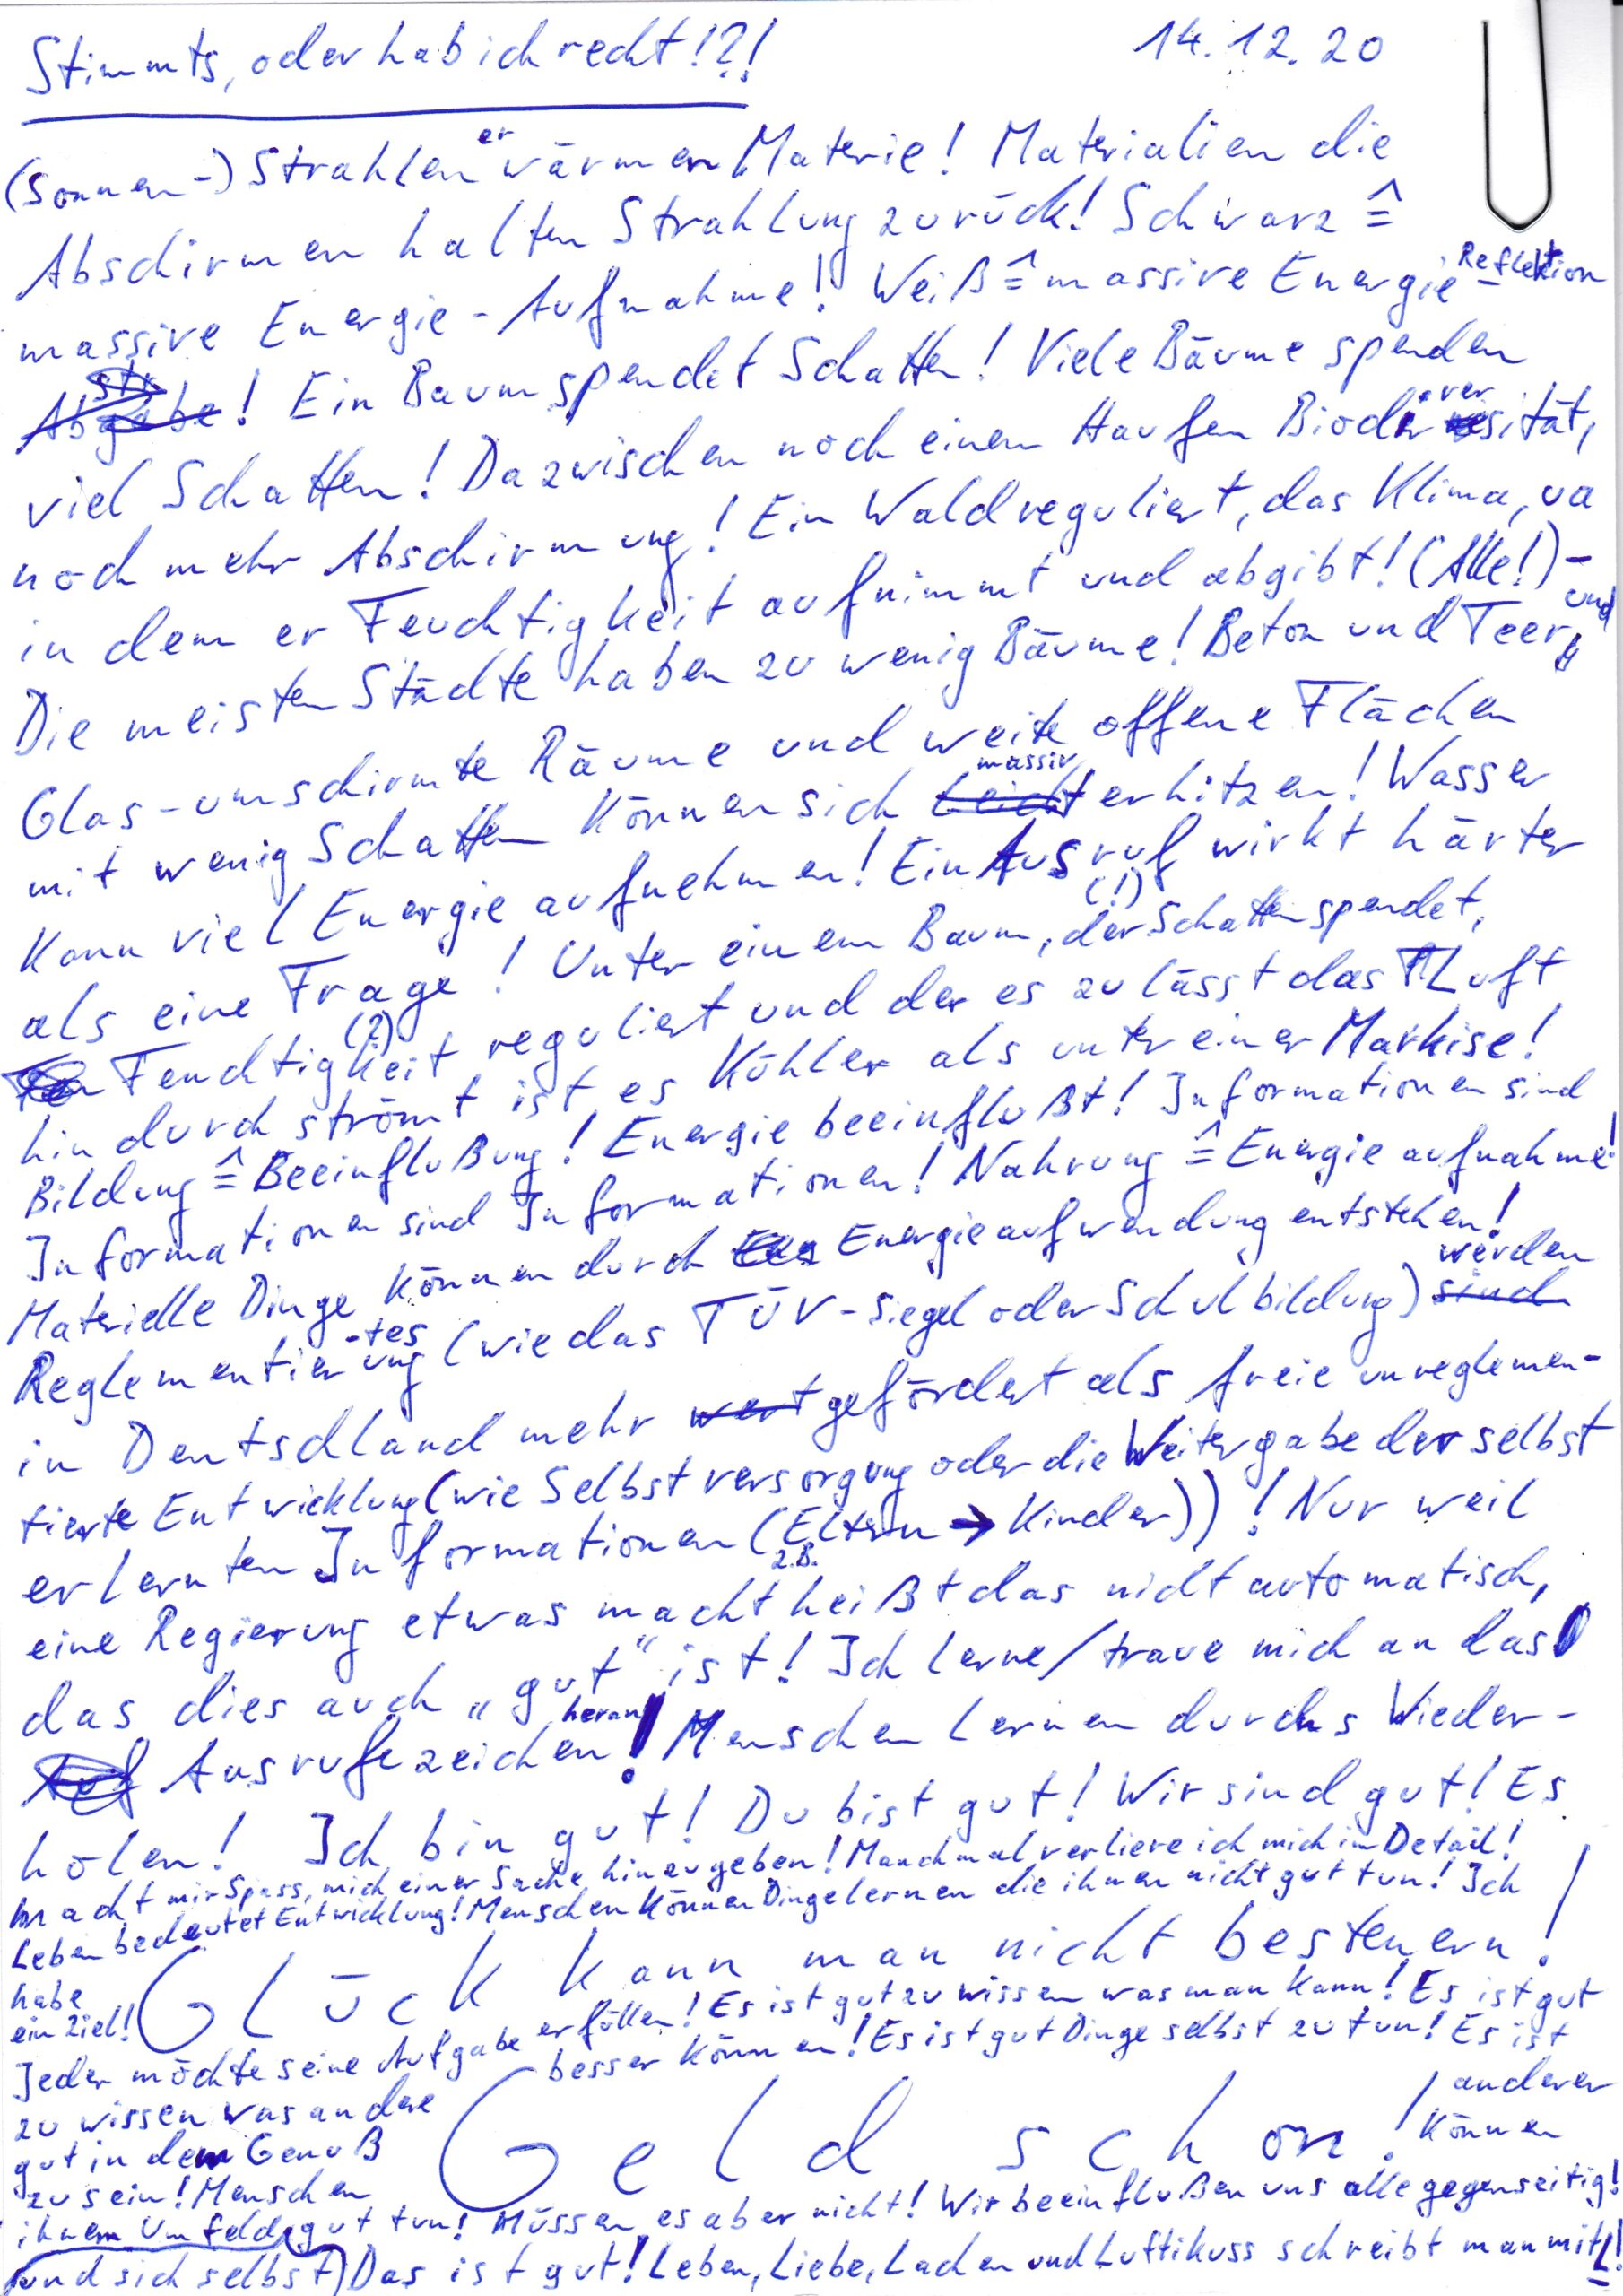 Stimmts, oder hab ich recht!?! 14.12.20
(Sonnen-) Strahlen erwärmen Materie! Materialien die
Abschirmen halten Strahlung zurück! Schwarz ≙
massive Energie-Aufnahme! Weiß ≙ massive Energie-Reflektion
! Ein Baum spendet Schatten! Viele Bäume spenden
viel Schatten! Dazwischen noch einen Haufen Biodiversität,
noch mehr Abschirmung! Ein Wald reguliert, das Klima, ua
in dem er Feuchtigkeit aufnimmt und abgibt! (Alle!)-
Die meisten Städte haben zu wenig Bäume! Beton und Teer, und
Glas-umschirmte Räume und weite offene Flächen
mit wenig Schatten können sich massiv erhitzen! Wasser
kann viel Energie aufnehmen! Ein Ausruf (!) wirkt härter
als eine Frage (?)! Unter einem Baum, der Schatten spendet,
Feuchtigkeit reguliert und der es zulässt das Luft
hindurch strömt ist es Kühler als unter einer Markise!
Bildung ≙ Beeinflußung! Energie beeinflußt! Informationen sind
Informationen sind Informationen! Nahrung ≙ Energieaufnahme!
Materielle Dinge können durch Energieaufwendung entstehen!
Reglementiertes (wie das TÜV-Siegel oder Schulbildung) werden
in Deutschland mehr gefördert als freie unreglemen-
tierte Entwicklung (wie Selbstversorgung oder die Weitergabe der selbst
erlernten Informationen (z.B. Eltern → Kinder))! Nur weil
eine Regierung etwas macht heißt das nicht automatisch,
das dies auch „gut“ ist! Ich lerne/traue mich an das
Ausrufezeichen heran! Menschen lernen durchs Wieder-
holen! Ich bin gut! Du bist gut! Wir sind gut! Es
macht mir Spass, mich einer Sache hinzugeben! Manchmal verliere ich mich im Detail!
Leben bedeutet Entwicklung! Menschen können Dinge lernen die ihnen nicht gut tun! Ich
habe
ein Ziel!
Glück kann man nicht besteuern!
Jeder möchte seine Aufgabe erfüllen! Es ist gut zu wissen was man kann! Es ist gut
zu wissen was andere besser können! Es ist gut Dinge selbst zu tun! Es ist
gut in dem Genuß anderer
zu sein! Menschen können
Geld schon!
ihnem Umfeld (und sich selbst) gut tun! Müssen es aber nicht! Wir beeinflußen uns alle gegenseitig!
Das ist gut! Leben, Liebe, Lachen und Luftikuss schreibt man mit L!